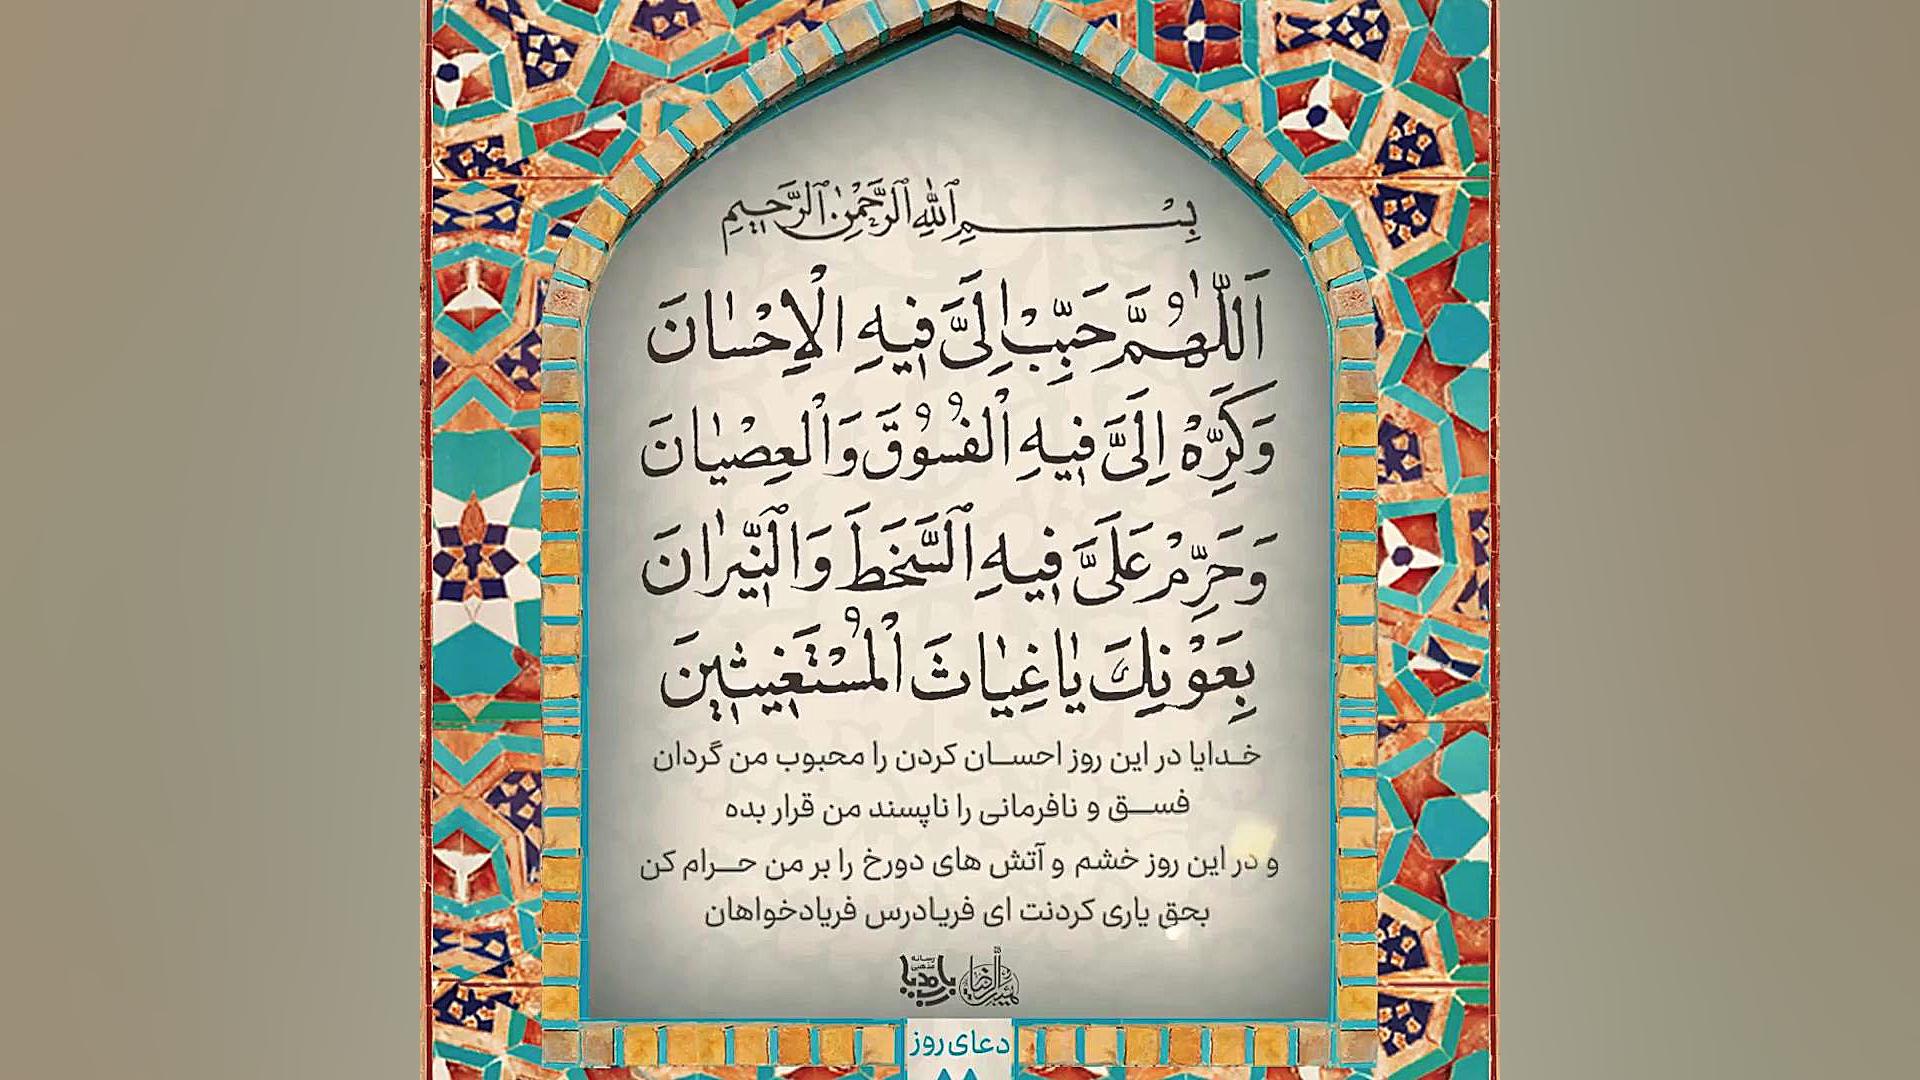 بِسْمِ ٱللّٰهِ ٱلرَّحْمٰنِ ٱلرَّحِيمِ
اَللّٰهُمَّ حَبِّبْ اِلَىَّ فيهِ الْاِحْسٰانَ
وَكَرِّهْ اِلَىَّ فيهِ الْفُسُوقَ وَالْعِصْيٰانَ
وَحَرِّمْ عَلَىَّ فيهِ ٱلسَّخَطَ وَٱلنّيرٰانَ
بِعَوْنِكَ يٰا غِيٰاثَ الْمُسْتَغيثينَ
خدایا در این روز احسان کردن را محبوب من گردان
فسق و نافرمانی را ناپسند من قرار بده
و در این روز خشم و آتش های دورخ را بر من حرام کن
بحق یاری کردنت ای فریادرس فریادخواهان
رسانه
مذهبی
دعای روز